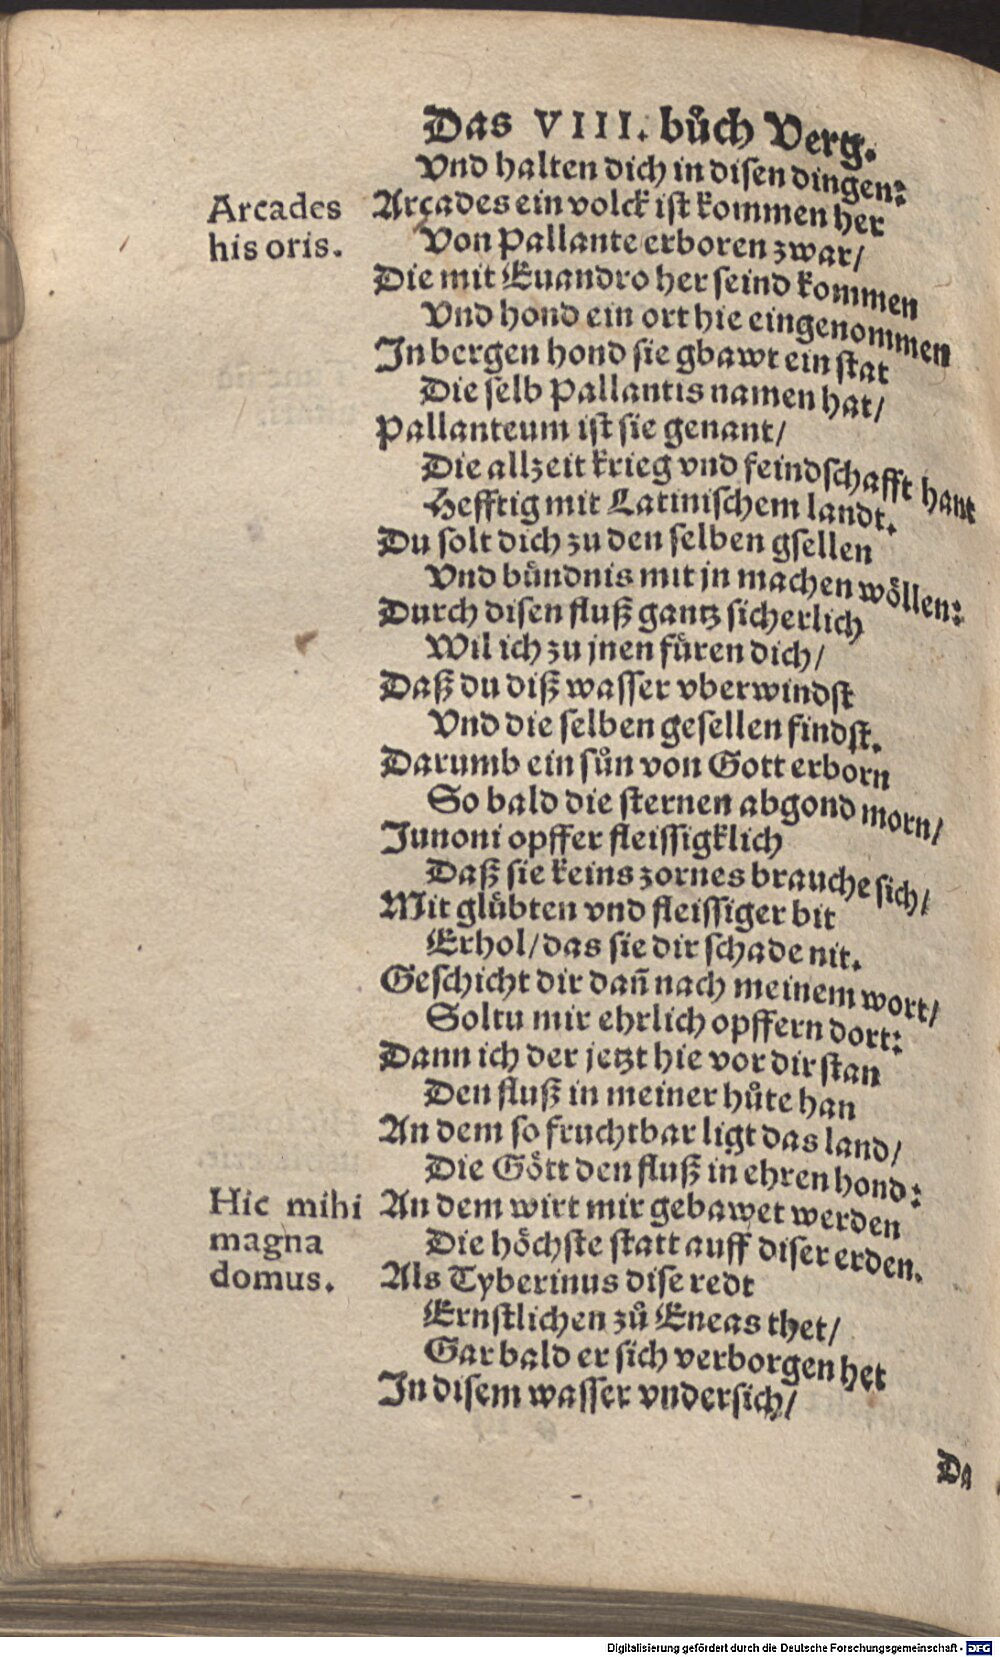 Das VIII. bůch Verg.
Vnd halten dich in disen dingen:
Arcades
his oris.
Arcades ein volck ist kommen her
Von Pallante erboren zwar/
Die mit Euandro her seind kommen
Vnd hond ein ort hie eingenommen
In bergen hond sie gbawt ein stat
Die selb Pallantis namen hat/
Pallanteum ist sie genant/
Die allzeit krieg vnd feindschafft hant
Hefftig mit Latinischem landt.
Du solt dich zu den selben gsellen
Vnd bündnis mit jn machen wöllen:
Durch disen fluß gantz sicherlich
Wil ich zu jnen füren dich/
Daß du diß wasser vberwindst
Vnd die selben gesellen findst.
Darumb ein sůn von Gott erborn
So bald die sternen abgond morn/
Junoni opffer fleissigklich
Daß sie keins zornes brauche sich/
Mit glübten vnd fleissiger bit
Erhol/ das sie dir schade nit.
Geschicht dir dañ nach meinem wort/
Soltu mir ehrlich opffern dort:
Dann ich der jetzt hie vor dir stan
Den fluß in meiner hůte han
An dem so fruchtbar ligt das land/
Die Gött den fluß in ehren hond:
Hic mihi
magna
domus.
An dem wirt mir gebawet werden
Die höchste statt auff diser erden.
Als Tyberinus dise redt
Ernstlichen zů Eneas thet/
Gar bald er sich verborgen het
In disem wasser vndersich/
Da
Digitalisierung gefördert durch die Deutsche Forschungsgemeinschaft - DFG